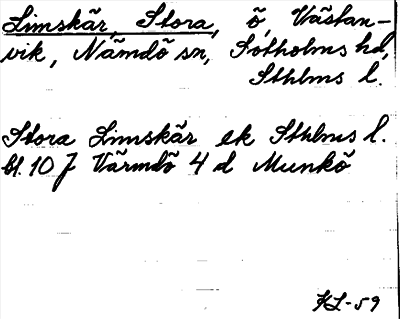 Limskär, Stora, ö, Västan-
vik, Nämdö sn, Sotholms hd,
Sthlms l.
Stora Limskär ek Sthlms l.
bl. 10 J Värmdö 4 d Munkö
KL-59